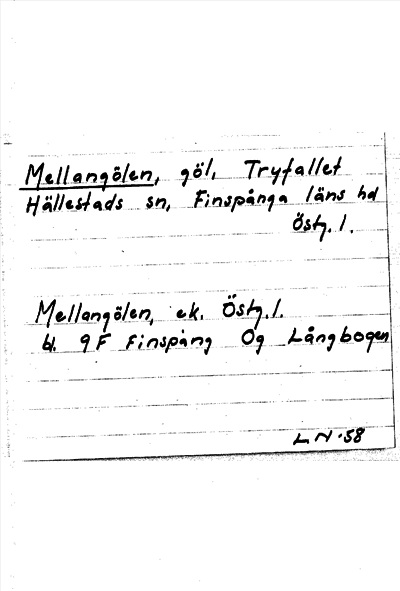 Mellangölen, göl, Tryfallet
Hällestads sn, Finspånga läns hd
Östg. l.
Mellangölen, ek. Östg. l.
bl. 9F Finspång Og Långbogen
LN ·58